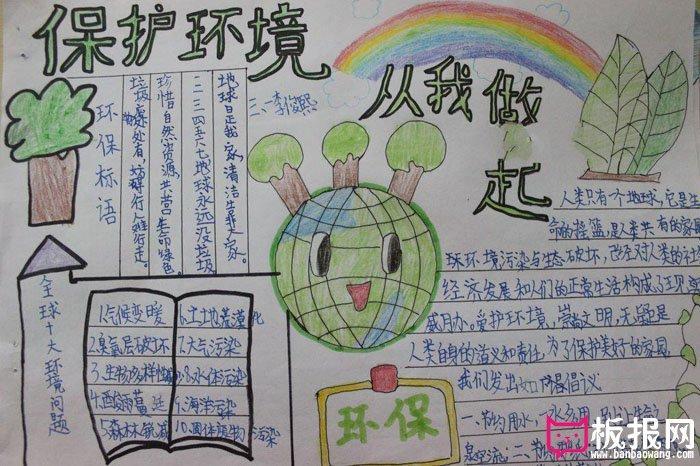 保护环境
从我做起
三、李俊熙
环保标语
地球是我家,清洁靠大家。
一二三四五六七地球永远没垃圾
珍惜自然资源,共营生命绿色。
垃圾处处有,行人难行走。
全球十大环境问题
1.气候变暖
2.臭氧层破坏
3.生物多样性
4.酸雨蔓延
5.森林锐减
6.土地荒漠化
7.大气污染
8.水体污染
9.海洋污染
10.固体废物污染
环保
人类只有一个地球,它是生
命的摇篮,是人类共有的家
球环境污染与生态破坏,已经对人类的社
经济发展和人们的正常生活构成了
威胁。爱护环境,崇尚文明,无疑是
人类自身的义和责任,为了保护美好的家园,
我们发出如倡议
一、节约用水
二、节
板报网
www.banbaowang.com